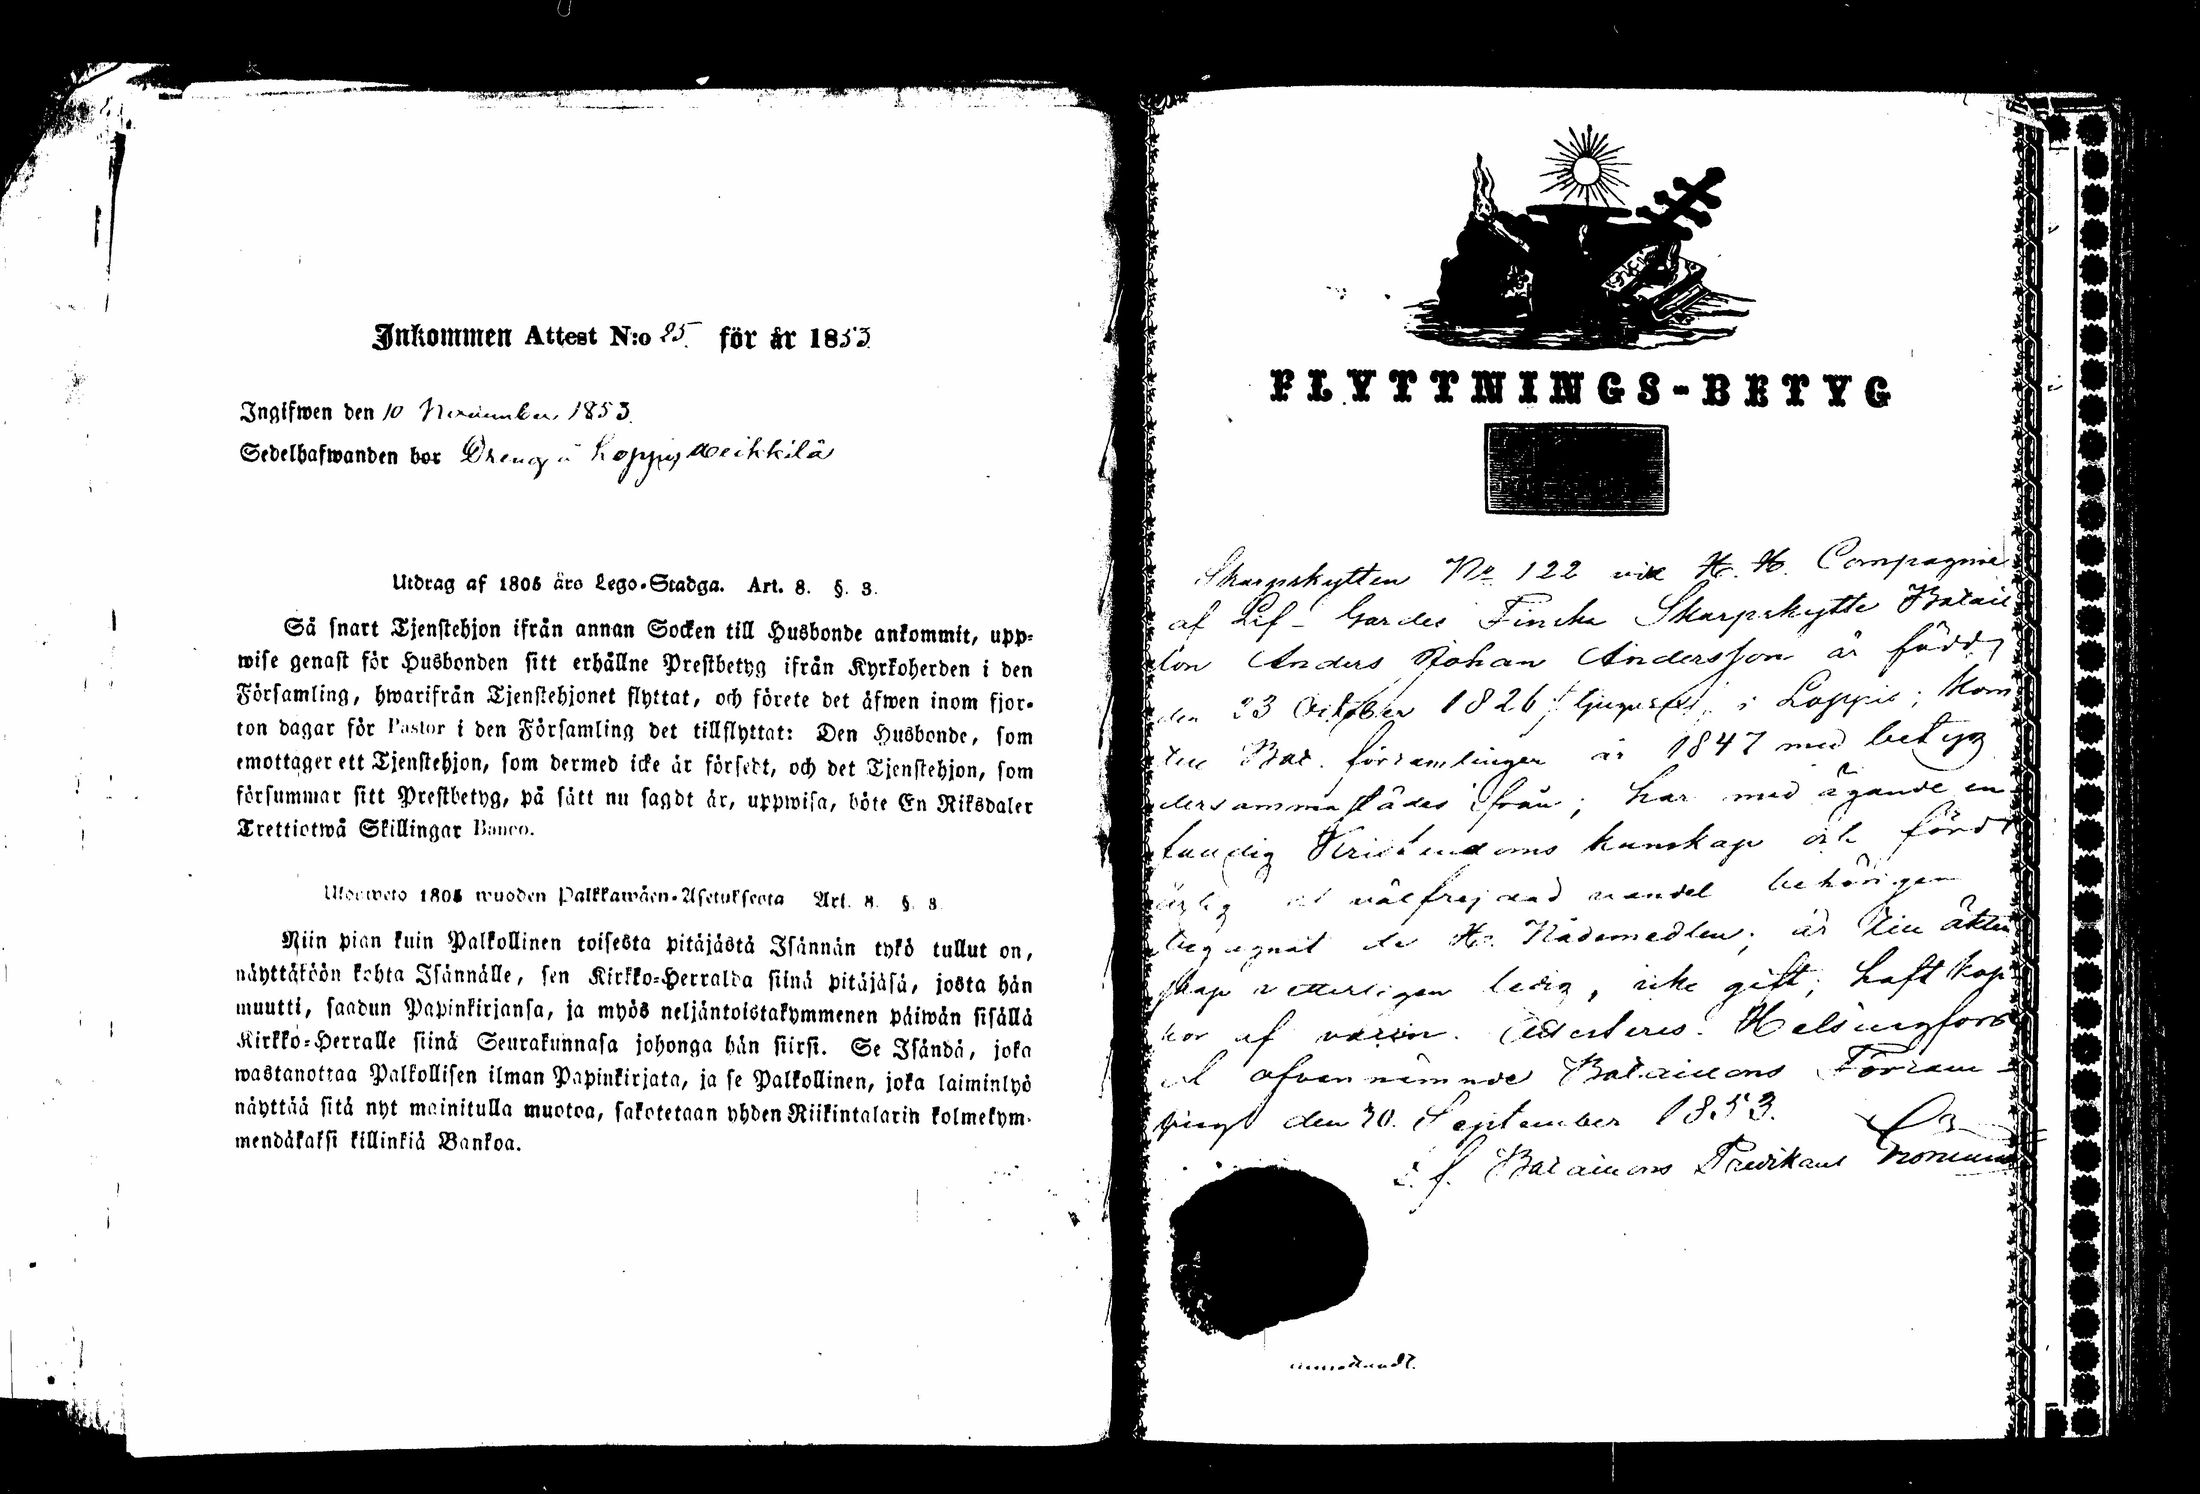 Inkommen Attest N:o 25. för år 1853
Ingifwen den 10 November 1853.
Sedelhafwanden bor Dreng i Loppis Heikkilä
Utdrag af 1805 års Lego-Stadga. Art. 8. §. 3.
Så snart Tjenstehjon ifrån annan Socken till Husbonde ankommit, upp-
wise genast för Husbonden sitt erhållne Prestbetyg ifrån Kyrkoherden i den
Församling, hwarifrån Tjenstehjonet flyttat, och förete det äfwen inom fjor-
ton dagar för Pastor i den Församling det tillflyttat: Den Husbonde, som
emottager ett Tjenstehjon, som dermed icke är försedt, och det Tjenstehjon, som
försummar sitt Prestbetyg, på sätt nu sagdt är, uppwisa, böte En Riksdaler
Trettiotwå Skillingar Banco.
Ulosweto 1805 wuoden Palkkawäen-Asetuksesta Art. 8. §. 3
Niin pian kuin Palkollinen toisesta pitäjästä Isännän tykö tullut on,
näyttäköön kohta Isännälle, sen Kirkko-Herralda siinä pitäjäsä, josta hän
muutti, saadun Papinkirjansa, ja myös neljäntoistakymmenen päiwän sisällä
Kirkko-Herralle siinä Seurakunnasa johonga hän siirsi. Se Isändä, joka
wastanottaa Palkollisen ilman Papinkirjata, ja se Palkollinen, joka laiminlyö
näyttää sitä nyt mainitulla muotoa, sakotetaan yhden Riikintalarin kolmekym-
mendäkaksi killinkiä Bankoa.
FLYTTNINGS-BETYG
Skarpskytten No 122 vid H. H. Compagnie
af Lif-Gardes Finska Skarpskytte Batail
lon Anders Johan Andersson är född
den 23 October 1826 i Loppis; kom
till Bat. församlingen år 1847 med betyg
dersammastädes ifrån; har med ägande en
tändig Kristendoms kunskap och fördt
ärlig välfrejdad vandel behörigen
begagnat de H. Nådemedlen; är till äkten
skap vetterligen ledig, icke gift; haft kop
por af vaccin. Attesteres. Helsingfors
ofvannämnde Bataillons Försam-
ling den 30. September 1853.
Bataillons Predikant